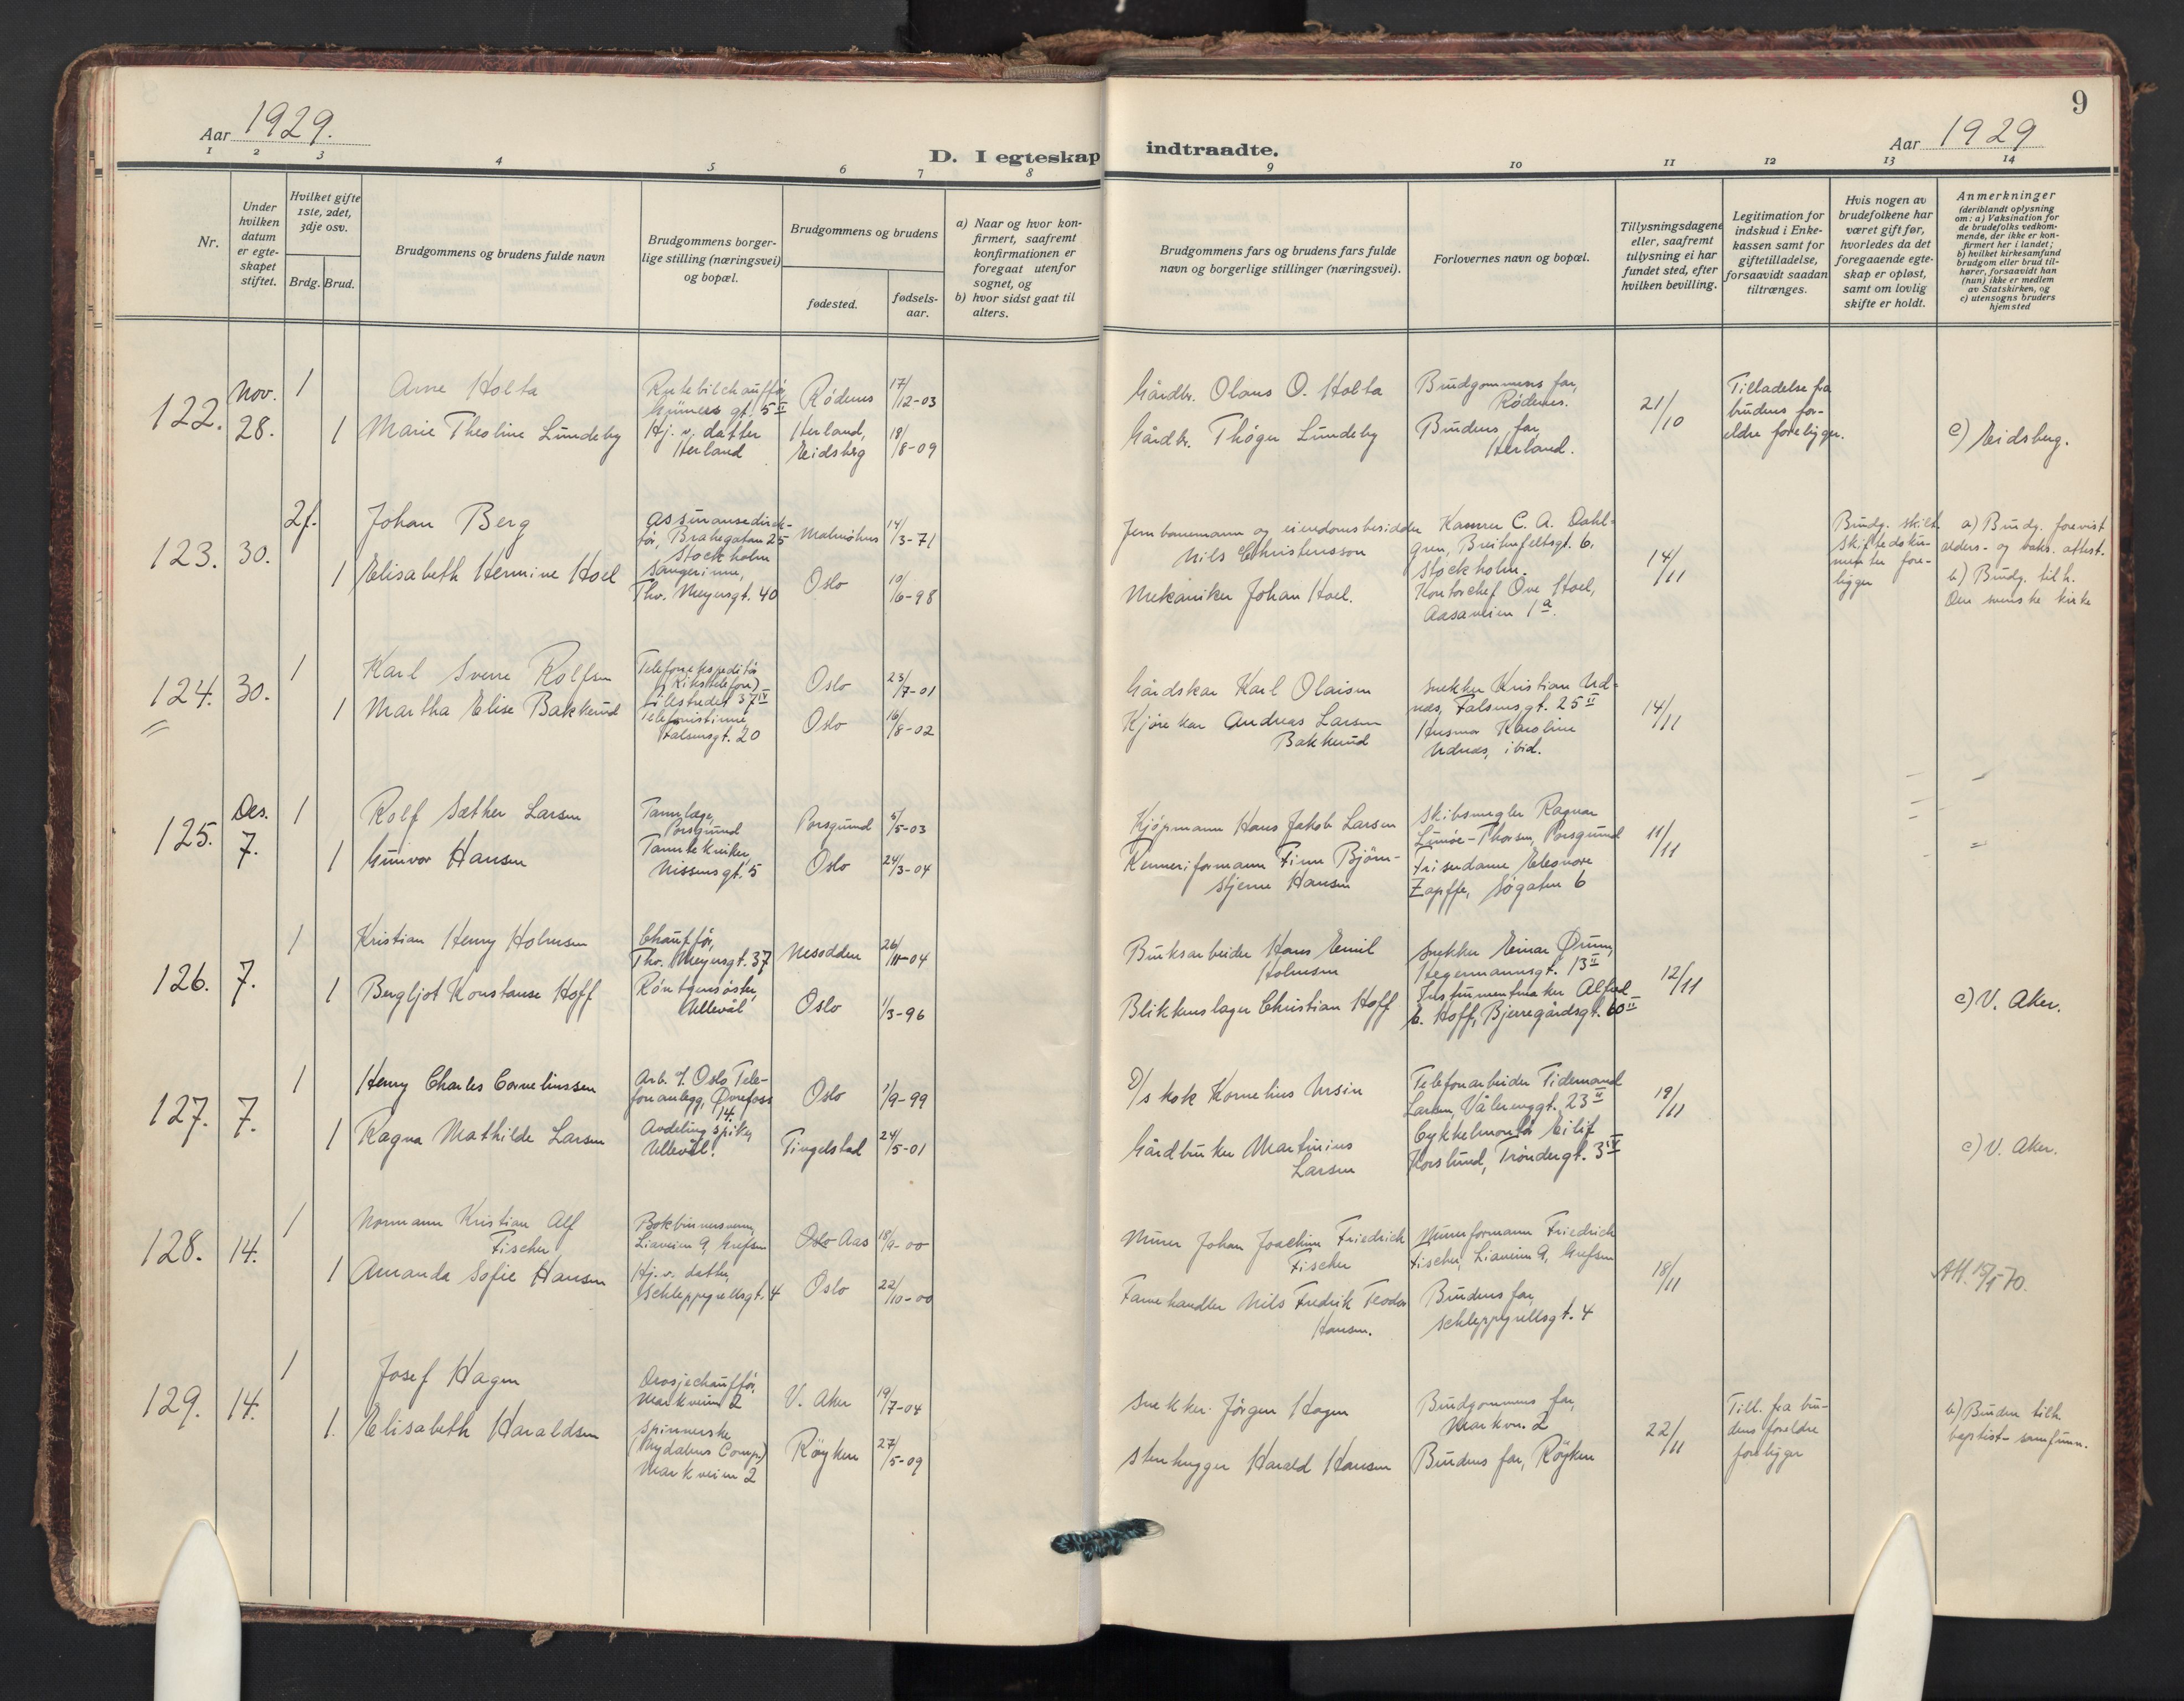 9
Aar 1929.
Aar 1929
D. I egteskap indtraadte.
1 2 3 4 5 6 7 8 9 10 11 12 13 14
Nr.
Under
hvilken
datum
er egte-
skapet
stiftet.
Hvilket gifte
1ste, 2det,
3dje osv.
Brdg. Brud.
Brudgommens og brudens fulde navn
Brudgommens borger-
lige stilling (næringsvei)
og bopæl.
Brudgommens og brudens
fødested.
fødsels-
aar.
a) Naar og hvor kon-
firmert, saafremt
konfirmationen er
foregaat utenfor
sognet, og
b) hvor sidst gaat til
alters.
Brudgommens fars og brudens fars fulde
navn og borgerlige stillinger (næringsvei).
Forlovernes navn og bopæl.
Tillysningsdagene
eller, saafremt
tillysning ei har
fundet sted, efter
hvilken bevilling.
Legitimation for
indskud i Enke-
kassen samt for
giftetilladelse,
forsaavidt saadan
tiltrænges.
Hvis nogen av
brudefolkene har
været gift før,
hvorledes da det
foregaaende egte-
skap er opløst,
samt om lovlig
skifte er holdt.
Anmerkninger
(deriblandt oplysning
om: a) Vaksination for
de brudefolks vedkom-
mende, der ikke er kon-
firmert her i landet;
b) hvilket kirkesamfund
brudgom eller brud til-
hører, forsaavidt han
(hun) ikke er medlem
av Statskirken, og
c) utensogns bruders
hjemsted
122.
Nov.
28.
1
1
Arne Holta
Marie Theoline Lundeby
Rutebilchauffør,
Grüners gt. 5 II
Hj. v. datter
Herland
Rødenes
Herland,
Eidsberg
17/12-03
18/8-09
Gårdbr. Olaus O. Holta
Gårdbr. Thøger Lundeby
Brudgommens far,
Rødenes.
Brudens far
Herland.
21/10
Tilladelse fra
brudens for-
eldre foreligger.
c) Eidsberg.
123.
30.
2f.
1
Johan Berg
Elisabeth Hermine Hoel
Assuransedirek-
tør, Brahegatan 25
Stockholm
Sangerinne,
Thv. Meyersgt. 40
Malmøhus
Oslo
14/3-71
10/6-98
Jernbanemann og eiendomsbesidder
Nils Christensson
Mekaniker Johan Hoel.
Kamrer C. A. Dahl-
gren, Breitenfeltsgt. 6,
Stockholm.
Kontorchef Ove Hoel,
Aasaveien 1 a.
14/11
Brudg. skilt
Skiftedoku-
menter fore-
ligger
a) Brudg. forevist
alders- og vaks. attest.
b) Brudg. tilh.
Den svenske kirke
124.
30.
1
1
Karl Sverre Rolfsen
Martha Elise Bakkerud
Telefonekspeditør
(Rikstelefon)
Lillestredet 37 IV
Telefonistinne,
Falsensgt. 20
Oslo
Oslo
23/7-01
16/8-02
Gårdskar Karl Olaisen
Kjørekar Andreas Larsen
Bakkerud
Snekker Kristian Ud-
næs, Falsensgt. 25 II
Husmor Karoline
Udnæs, ibid.
14/11
125.
Des.
7.
1
1
Rolf Sæther Larsen
Gunvor Hansen
Tannlæge,
Porsgrund
Tanntekniker,
Nissensgt. 5
Porsgrund
Oslo
5/5-03
24/3-04
Kjøpmann Hans Jakob Larsen
Renneriformann Finn Bjørn-
stjerne Hansen
Skibsmegler Ragnar
Limøe-Thorsen, Porsgrund
Friserdame Eleonore
Zapffe, Søgaten 6
11/11
126.
7.
1
1
Kristian Henry Holmsen
Bergljot Konstanse Hoff
Chauffør,
Thv. Meyersgt. 37
Røntgensøster,
Ullevål
Nesodden
Oslo
26/11-04
1/3-96
Bruksarbeider Hans Emil
Holmsen
Blikkenslager Christian Hoff
Snekker Einar Ørum,
Hegermannsgt. 13 II
Instrumentmaker Alfred
C. Hoff, Bjerregårdsgt. 60 II
12/11
c) V. Aker.
127.
7.
1
1
Henry Charles Corneliussen
Ragna Mathilde Larsen
Arb. v. Oslo Tele-
fonanlegg, Øvrefoss
14.
Avdelingspike,
Ullevål.
Oslo
Tingelstad
1/9-99
24/5-01
D/s kok Kornelius Ursin
Gårdbruker Martinius
Larsen
Telefonarbeider Tidemand
Larsen, Vålerenggt. 23 II
Cykkelmontør Eilif
Korslund, Trøndergt. 3 IV
19/11
c) V. Aker.
128.
14.
1
1
Normann Kristian Alf
Fischer
Amanda Sofie Hansen
Bokbindersvenn,
Liaveien 9, Grefsen
Hj. v. datter,
Schleppegrellsgt. 4
Oslo Aas
Oslo
18/9-00
22/10-00
Murer Johan Joachim Friedrich
Fischer
Farvehandler Nils Fredrik Teodor
Hansen.
Murerformann Friedrich
Fischer, Liaveien 9, Grefsen
Brudens far,
Schleppegrellsgt. 4
18/11
Att. 19/1-70.
129.
14.
1
1.
Josef Hagen
Elisabeth Haraldsen
Drosjechauffør,
Markveien 2
Spinnerske
(Nydalens Comp.)
Markveien 2
V. Aker
Røyken
19/7-04
27/5-09
Snekker Jørgen Hagen
Stenhugger Harald Hansen
Brudgommens far,
Markvn. 2
Brudens far, Røyken
22/11
Till. fra bru-
dens foreldre
foreligger
b) Bruden tilh.
baptist-samfunn.